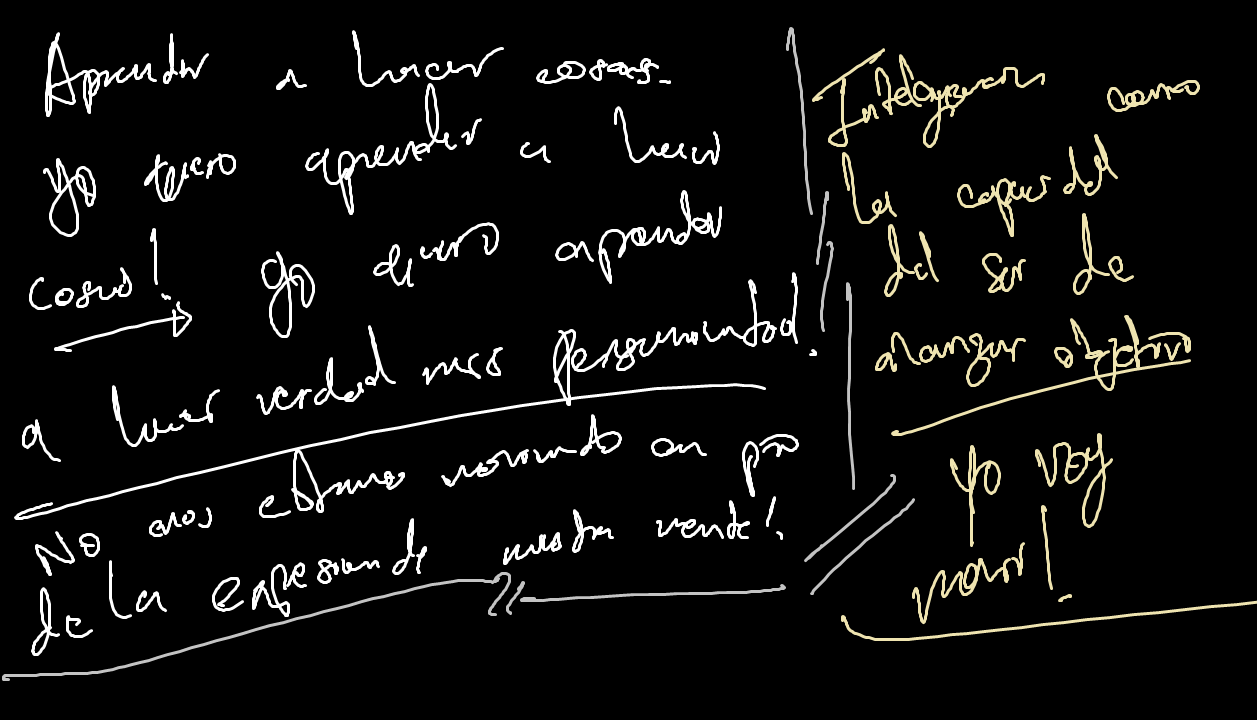 Aprender a hacer cosas.
yo quiero aprender a hacer
cosas! yo quiero aprender
a hacer verdad mas
No nos estamos moviendo en pro
de la expresion de nuestra mente!
Inteligencia como
la capacidad
del ser de
alcanzar objetivo
Yo voy
morir!